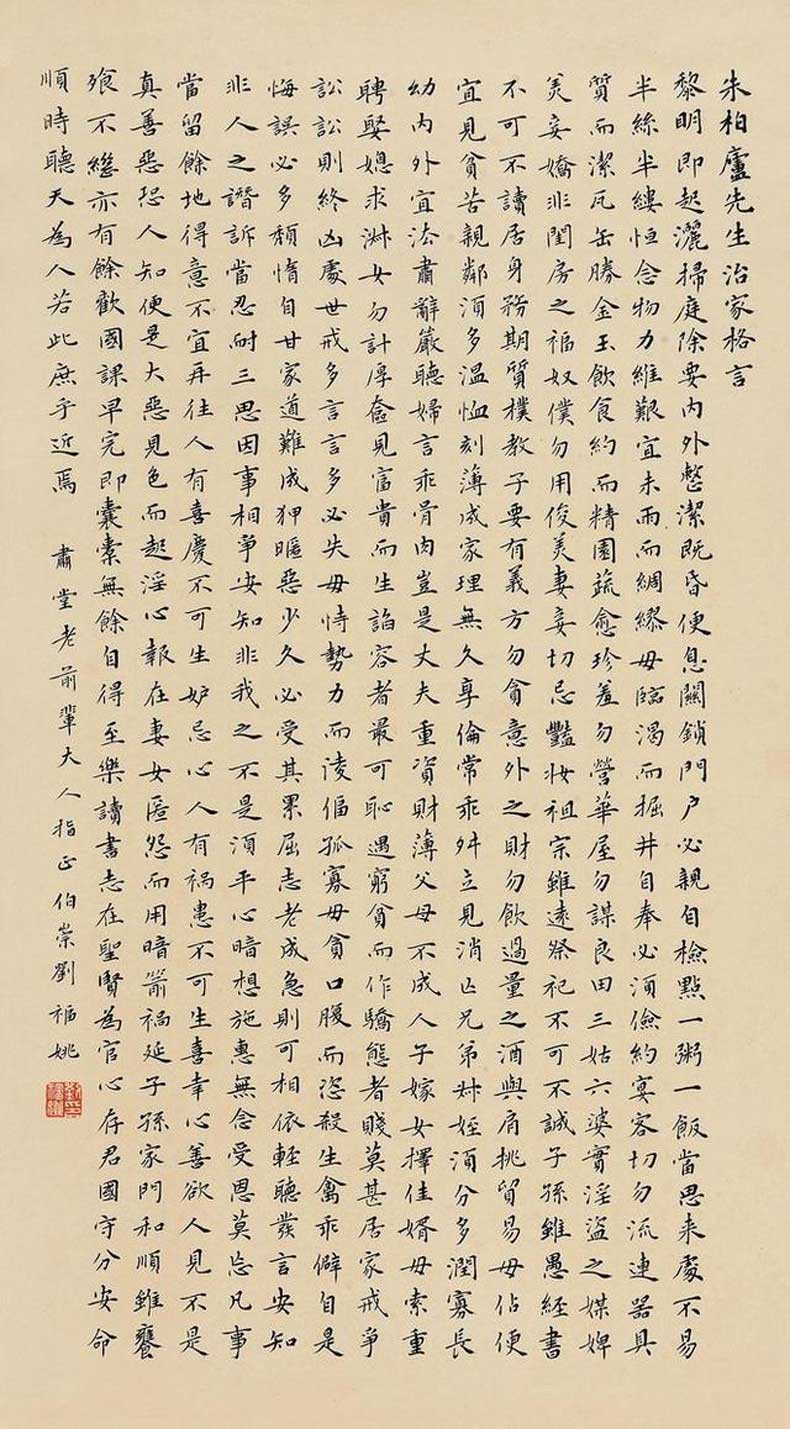 朱柏廬先生治家格言
黎明即起灑掃庭除要內外整潔既昏便息關鎖門戶必親自檢點一粥一飯當思来處不易
半絲半縷恒念物力維艱宜未雨而綢繆毋臨渴而掘井自奉必須儉約宴客切勿流連器具
質而潔瓦缶勝金玉飲食約而精園蔬愈珍羞勿營華屋勿謀良田三姑六婆實淫盜之媒婢
美妾嬌非閨房之福奴僕勿用俊美妻妾切忌豔妝祖宗雖遠祭祀不可不誠子孫雖愚經書
不可不讀居身務期質樸教子要有義方勿貪意外之財勿飲過量之酒與肩挑貿易毋佔便
宜見貧苦親鄰須多温恤刻薄成家理無久享倫常乖舛立見消亡兄弟叔姪須分多潤寡長
幼內外宜法肅辭嚴聽婦言乖骨肉豈是丈夫重資財薄父母不成人子嫁女擇佳婿毋索重
聘娶媳求淑女勿計厚奩見富貴而生諂容者最可恥遇窮貧而作驕態者賤莫甚居家戒爭
訟訟則終凶處世戒多言言多必失毋恃勢力而凌偪孤寡毋貪口腹而恣殺生禽乖僻自是
悔誤必多頹惰自甘家道難成狎暱惡少久必受其累屈志老成急則可相依輕聽發言安知
非人之譖訴當忍耐三思因事相爭安知非我之不是須平心暗想施惠無念受恩莫忘凡事
當留餘地得意不宜再往人有喜慶不可生妒忌心人有禍患不可生喜幸心善欲人見不是
真善惡恐人知便是大惡見色而起淫心報在妻女匿怨而用暗箭禍延子孫家門和順雖饔
飱不繼亦有餘歡國課早完即囊橐無餘自得至樂讀書志在聖賢為官心存君國守分安命
順時聽天為人若此庶乎近焉 肅堂老前輩大人指正 伯崇劉福姚